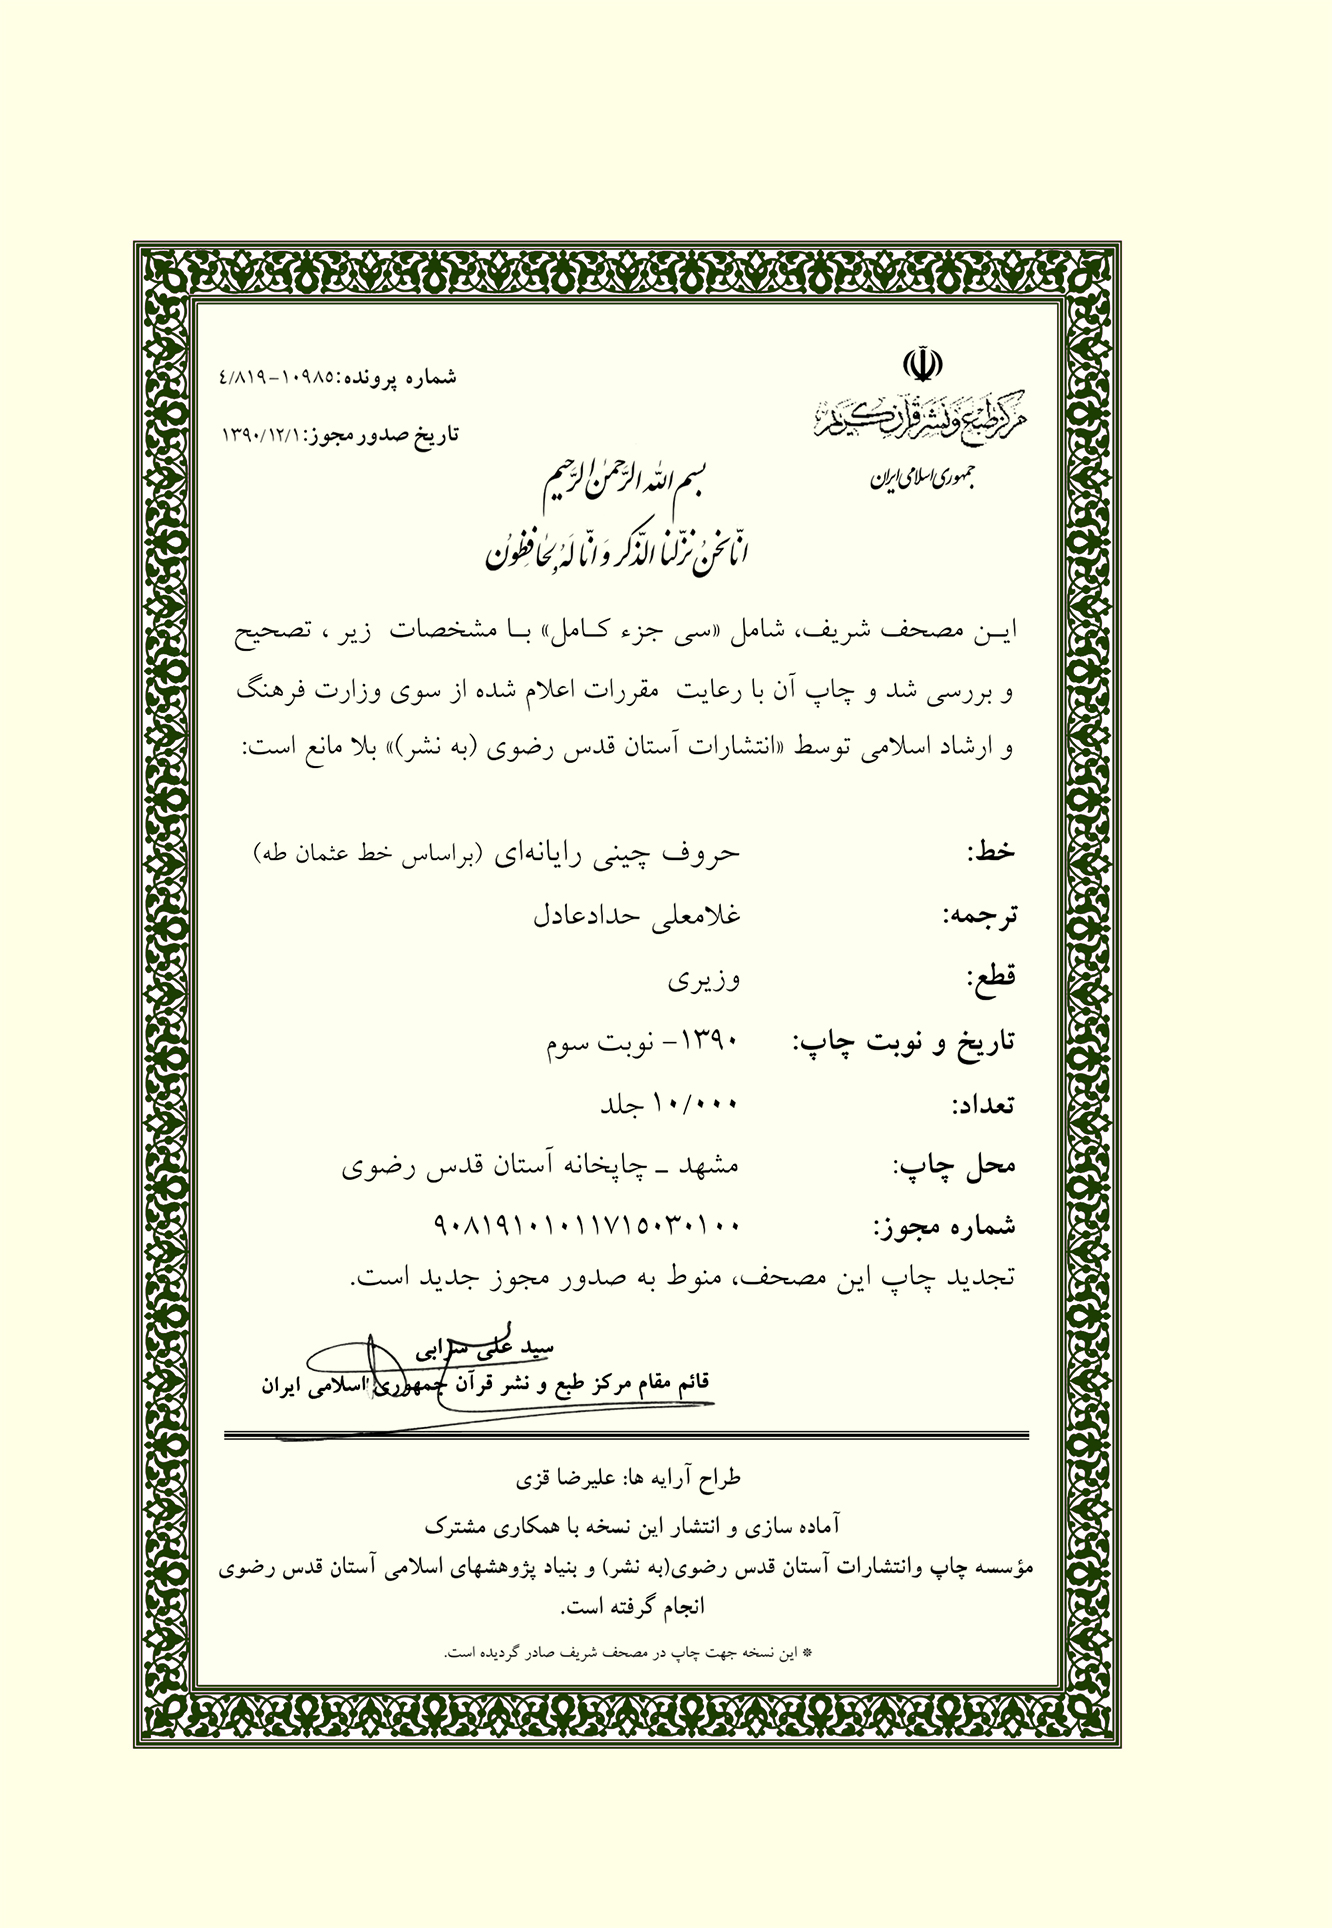 مرکز طبع و نشر قرآن کریم
جمهوری اسلامی ایران
شماره پرونده: ٤/٨١٩-١٠٩٨٥
تاریخ صدور مجوز: ١٣٩٠/١٢/١
بسم الله الرَّحمنِ الرَّحیم
انّا نَحنُ نَزّلنا الذّکر وَ انّا لَهُ لَحافِظُون
ایـن مصحف شریف، شامل «سی جزء کـامل» بـا مشخصات زیر ، تصحیح
و بررسی شد و چاپ آن با رعایت مقررات اعلام شده از سوی وزارت فرهنگ
و ارشاد اسلامی توسط «انتشارات آستان قدس رضوی (به نشر)» بلا مانع است:
خط: حروف چینی رایانه‌ای (براساس خط عثمان طه)
ترجمه: غلامعلی حدادعادل
قطع: وزیری
تاریخ و نوبت چاپ: ١٣٩٠- نوبت سوم
تعداد: ١٠/٠٠٠ جلد
محل چاپ: مشهد ـ چاپخانه آستان قدس رضوی
شماره مجوز: ٩٠٨١٩١٠١٠١١٧١٥٠٣٠١٠٠
تجدید چاپ این مصحف، منوط به صدور مجوز جدید است.
سید علی سرابی
قائم مقام مرکز طبع و نشر قرآن جمهوری اسلامی ایران
طراح آرایه ها: علیرضا قزی
آماده سازی و انتشار این نسخه با همکاری مشترک
مؤسسه چاپ وانتشارات آستان قدس رضوی(به نشر) و بنیاد پژوهشهای اسلامی آستان قدس رضوی
انجام گرفته است.
* این نسخه جهت چاپ در مصحف شریف صادر گردیده است.